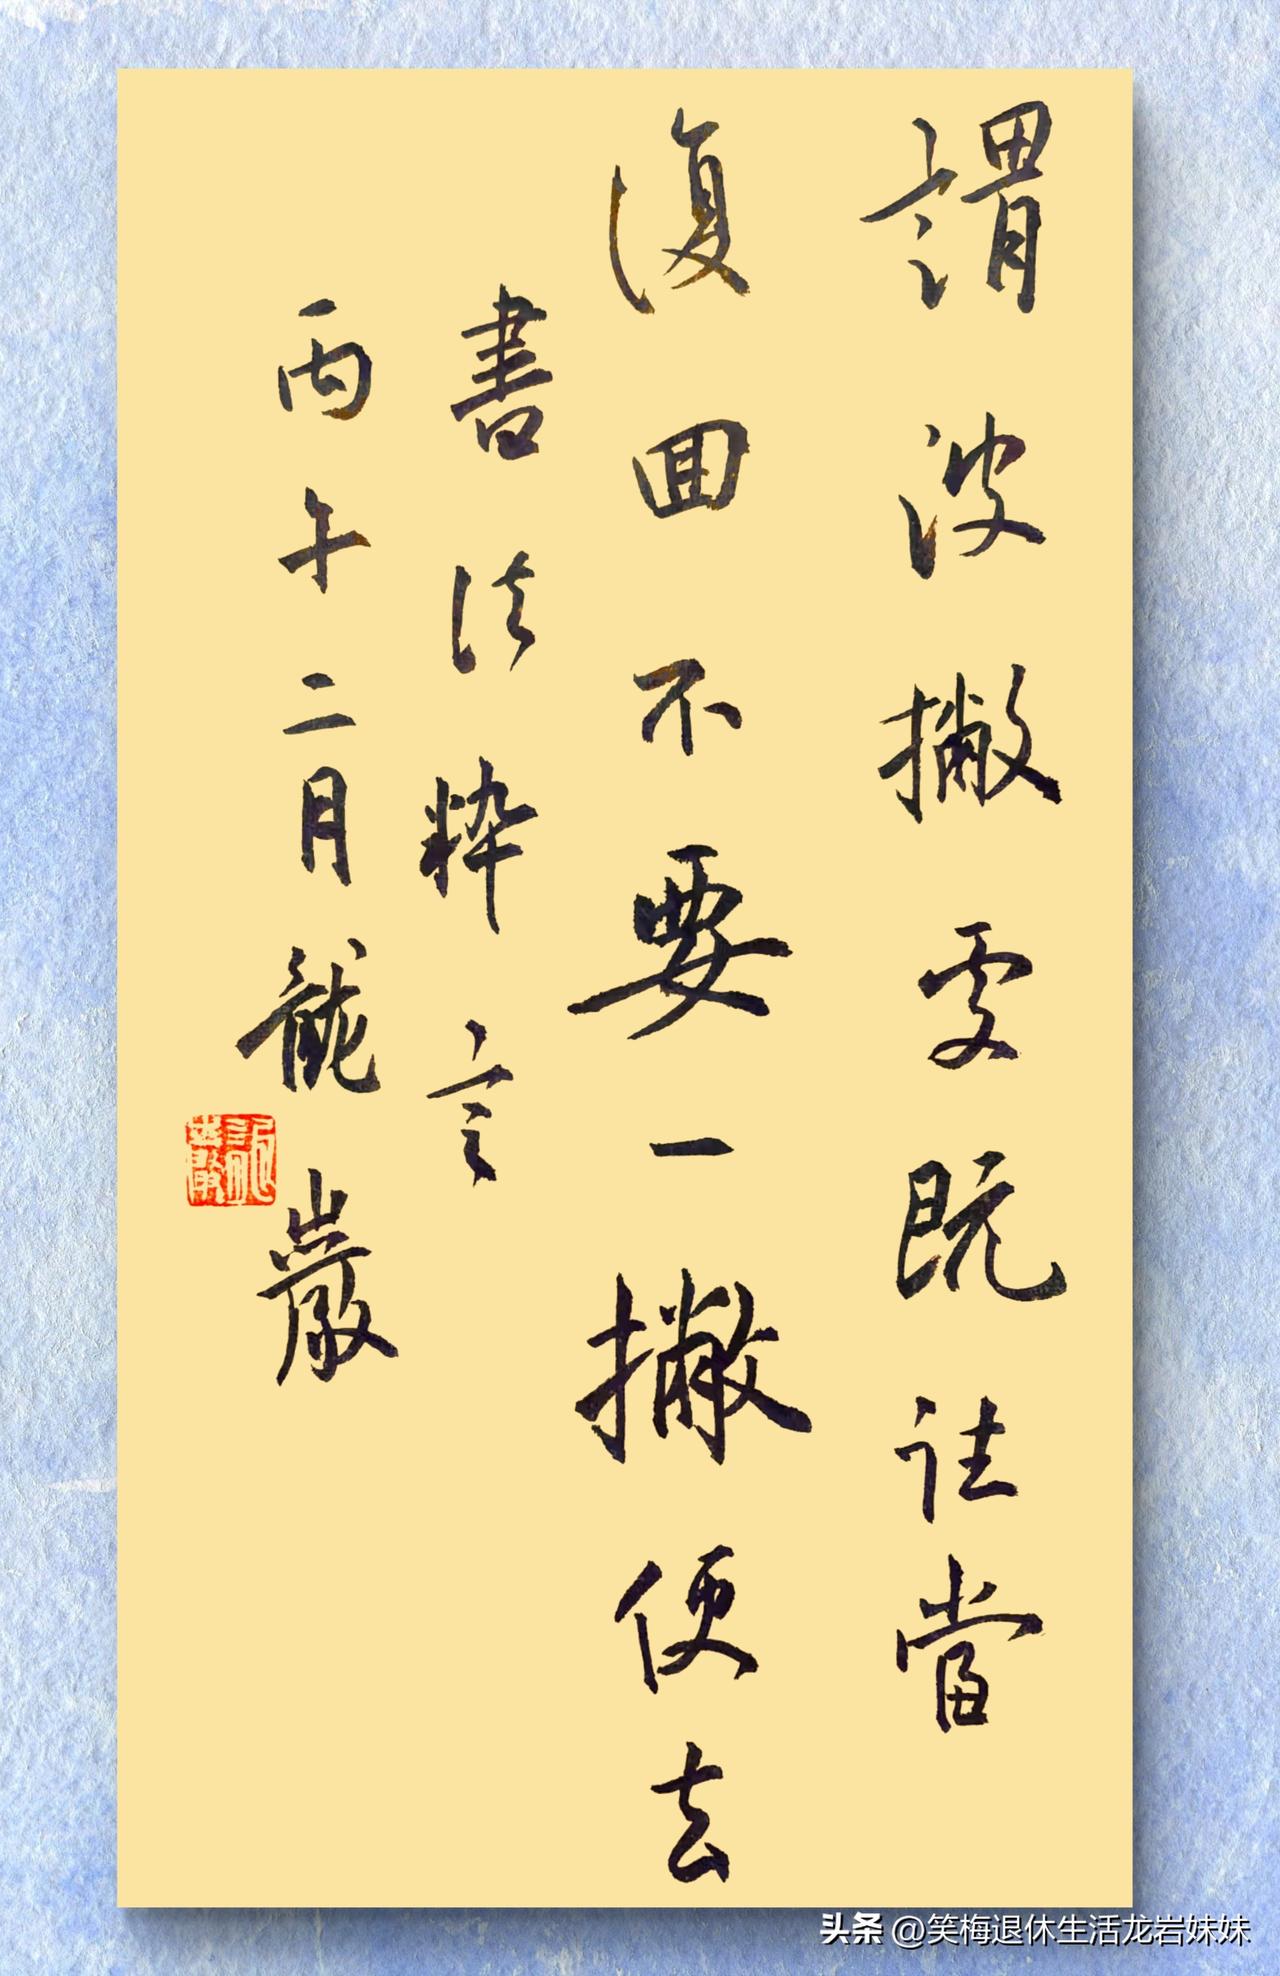 謂波撇處既往當
復回不要一撇便去
書法粹言
丙午二月龍巖
龍巖
头条 @笑梅退休生活龙岩妹妹